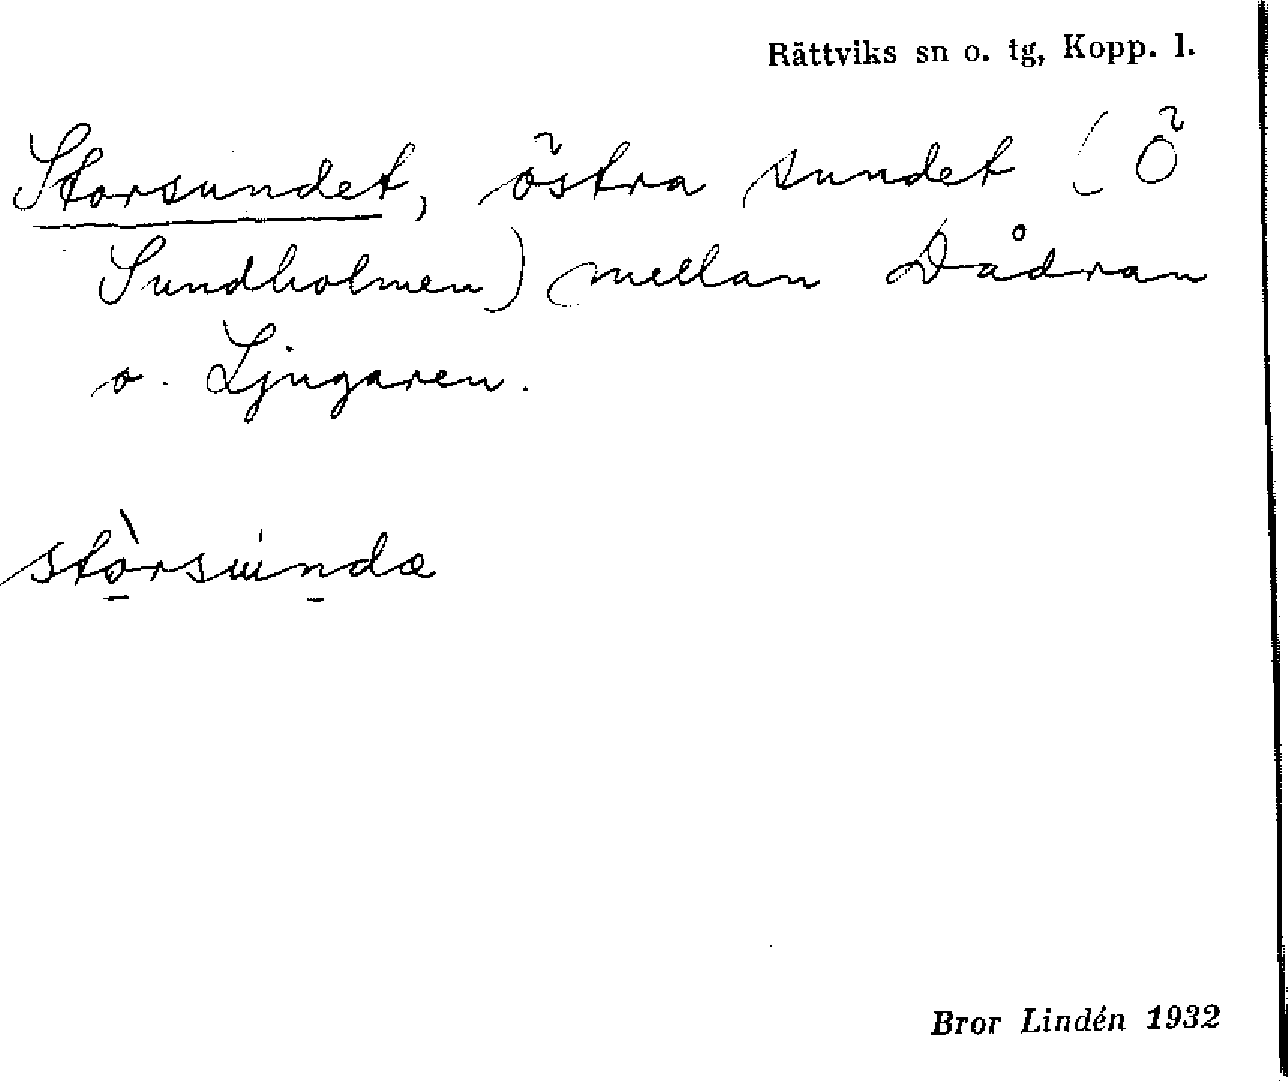 Rättviks sn o. tg, Kopp. l.
Storsundet, östra sundet (Ö
Sundholmen) mellan Dådran
o. Ljugaren.
Bror Lindén 1932